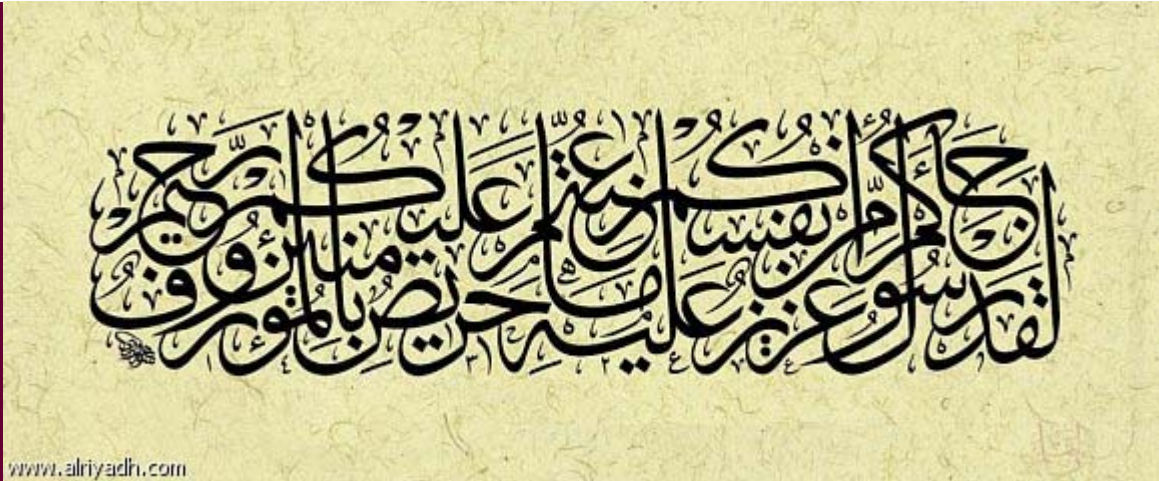 لقد جاءكم رسول من أنفسكم عزيز عليه ما عنتم حريص عليكم بالمؤمنين رؤف رحيم
www.alriyadh.com